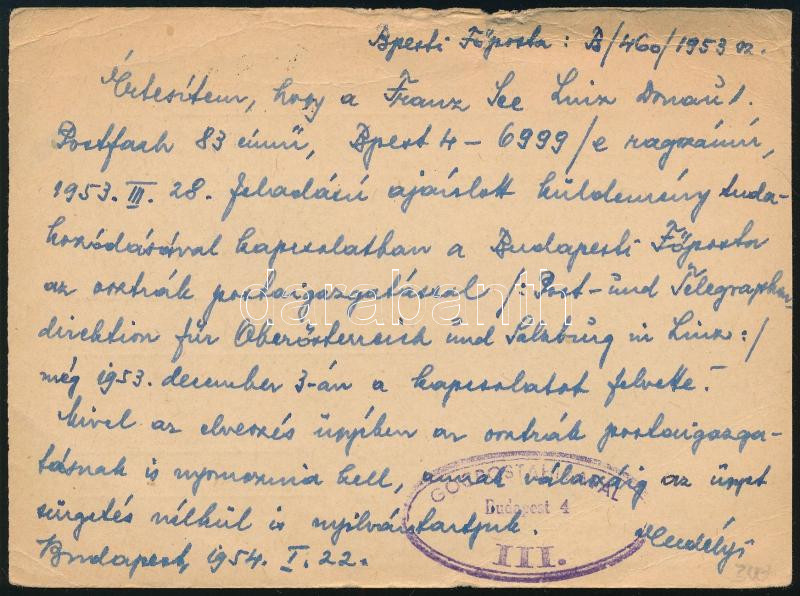 Bpesti Főposta: B/460/1953 sz.
Értesítem, hogy a Franz See Linz Donau 1.
Postfach 83 című, Bpest 4 - 6999/e ragszámú,
1953. III. 28. feladású ajánlott küldemény tuda-
kozódásával kapcsolatban a Budapesti Főposta
az osztrák postaigazgatással /: Post- und Telegraphen-
direktion für Oberösterreich und Salzburg in Linz :/
még 1953. december 3-án a kapcsolatot felvette.-
Mivel az elveszés ügyében az osztrák postaigazga-
tásnak is nyomoznia kell, annak válaszáig az ügyet
sürgetés nélkül is nyilvántartjuk.
Budapest, 1954. I. 22.
GÓCPOSTAHIVATAL
Budapest 4
III.
darabanth